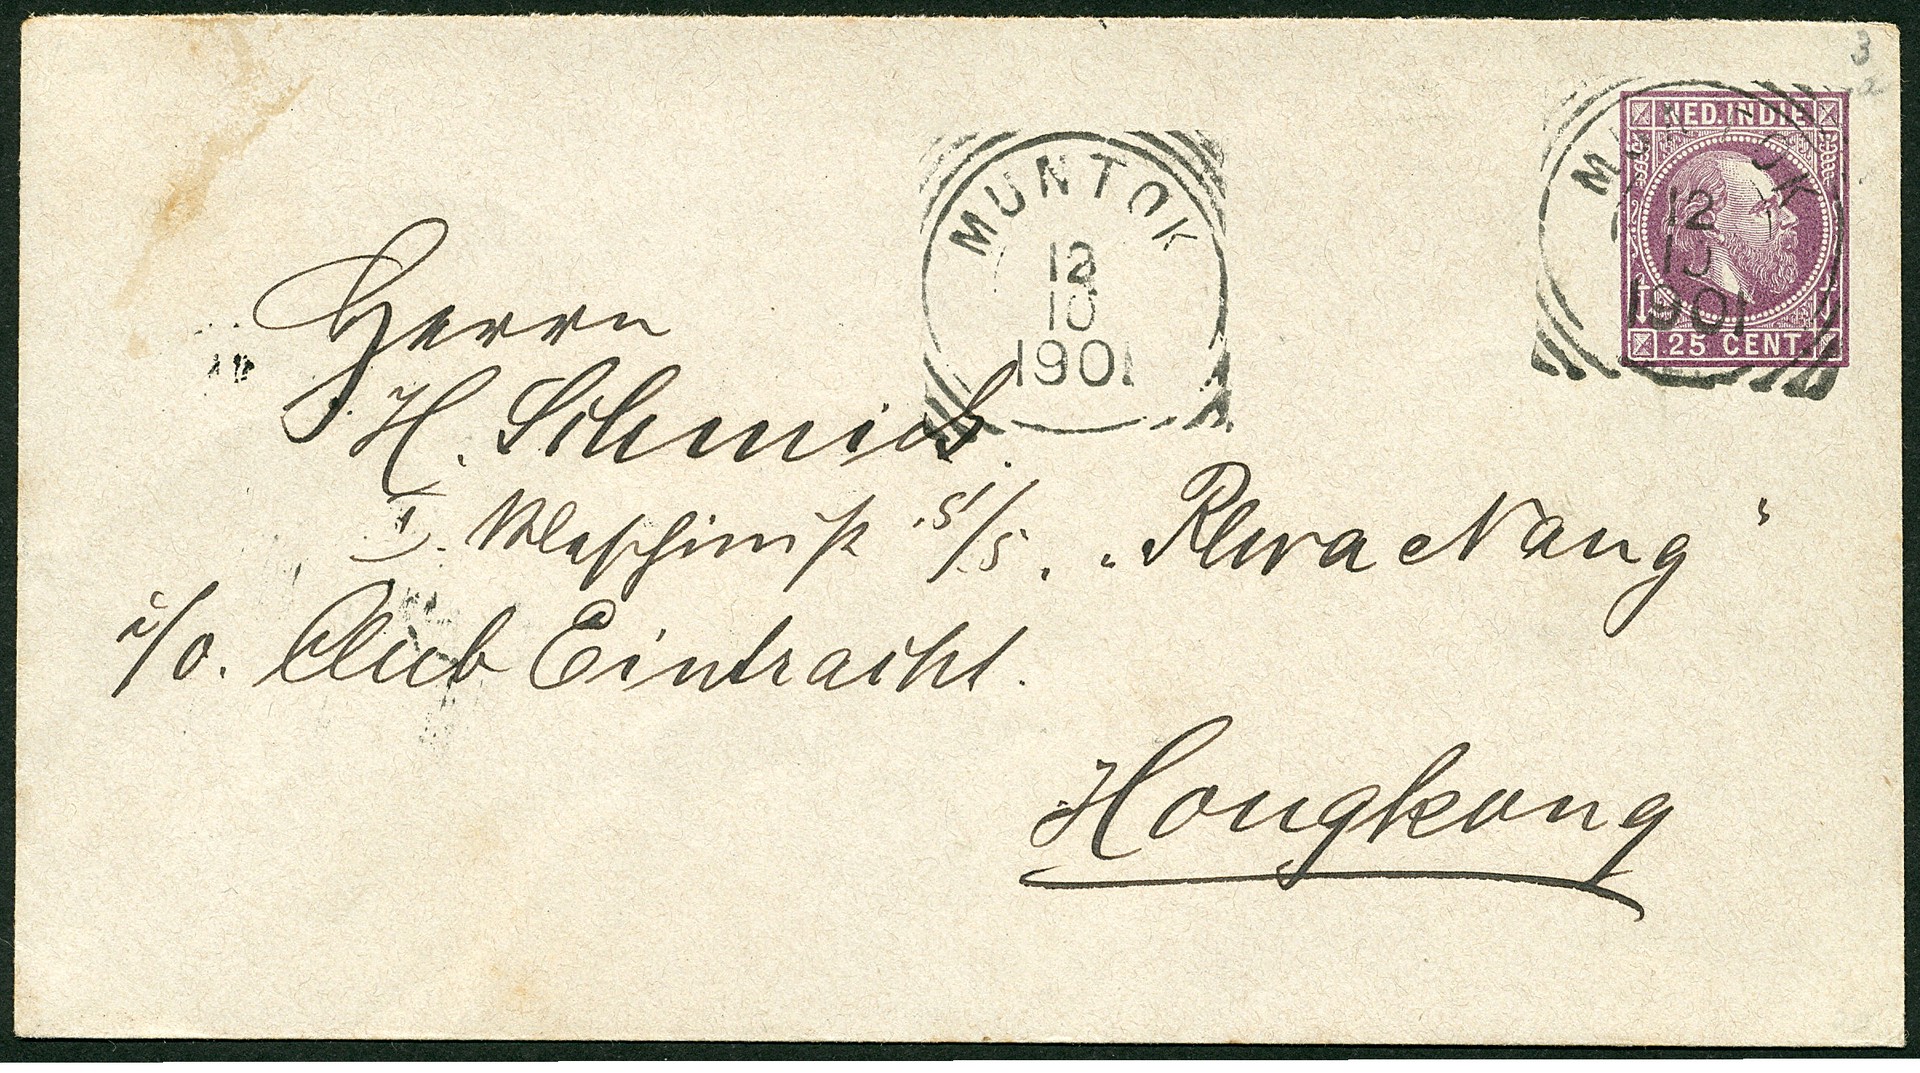 NED. INDIE
MUNTOK
12
10
1901
25 CENT
MUNTOK
12
10
1901
Herrn
H. Schmidt
I. Maschinist S/S. „Rhwa Nang"
c/o. Club Eintracht.
Hongkong
3
2